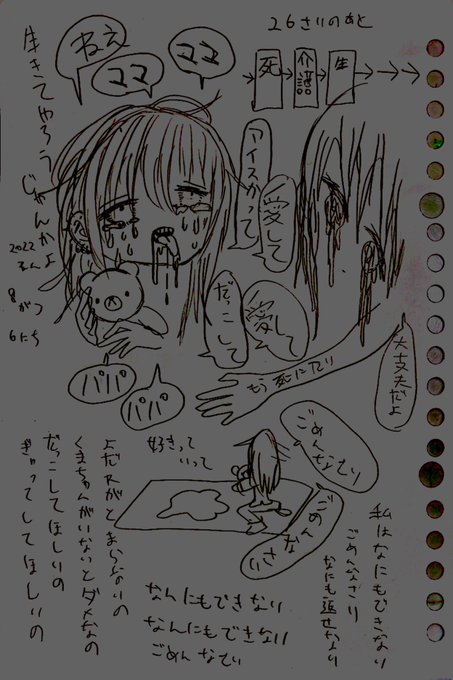 26さいのあと
死
介護
生
ねえ
ママ
ママ
生きてやろうじゃんかよ
2022ねん
8がつ
6にち
アイスかって
愛して
だっこして
愛して
パパ
パパ
もう死にたい
大丈夫だよ
ごめんなさい
ごめんなさい
好きって
いって
よだれがとまらないの
くまちゃんがいないとダメなの
だっこしてほしいの
ぎゅってしてほしいの
私はなにもできない
ごめんなさい
なにも返せない
なんにもできない
なんにもできない
ごめんなさい